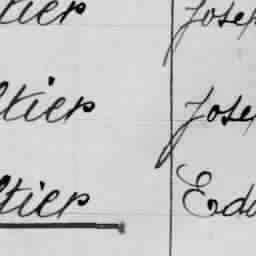 ltier Josep
ltier Josep
ltier Edo